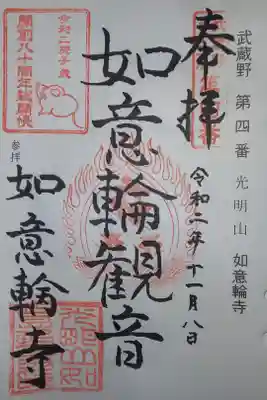 武蔵野 第四番 光明山 如意輪寺
奉拝
令和二年十一月八日
如意輪観音
参拝
如意輪寺
令和二庚子歳
開創八十周年総開帳